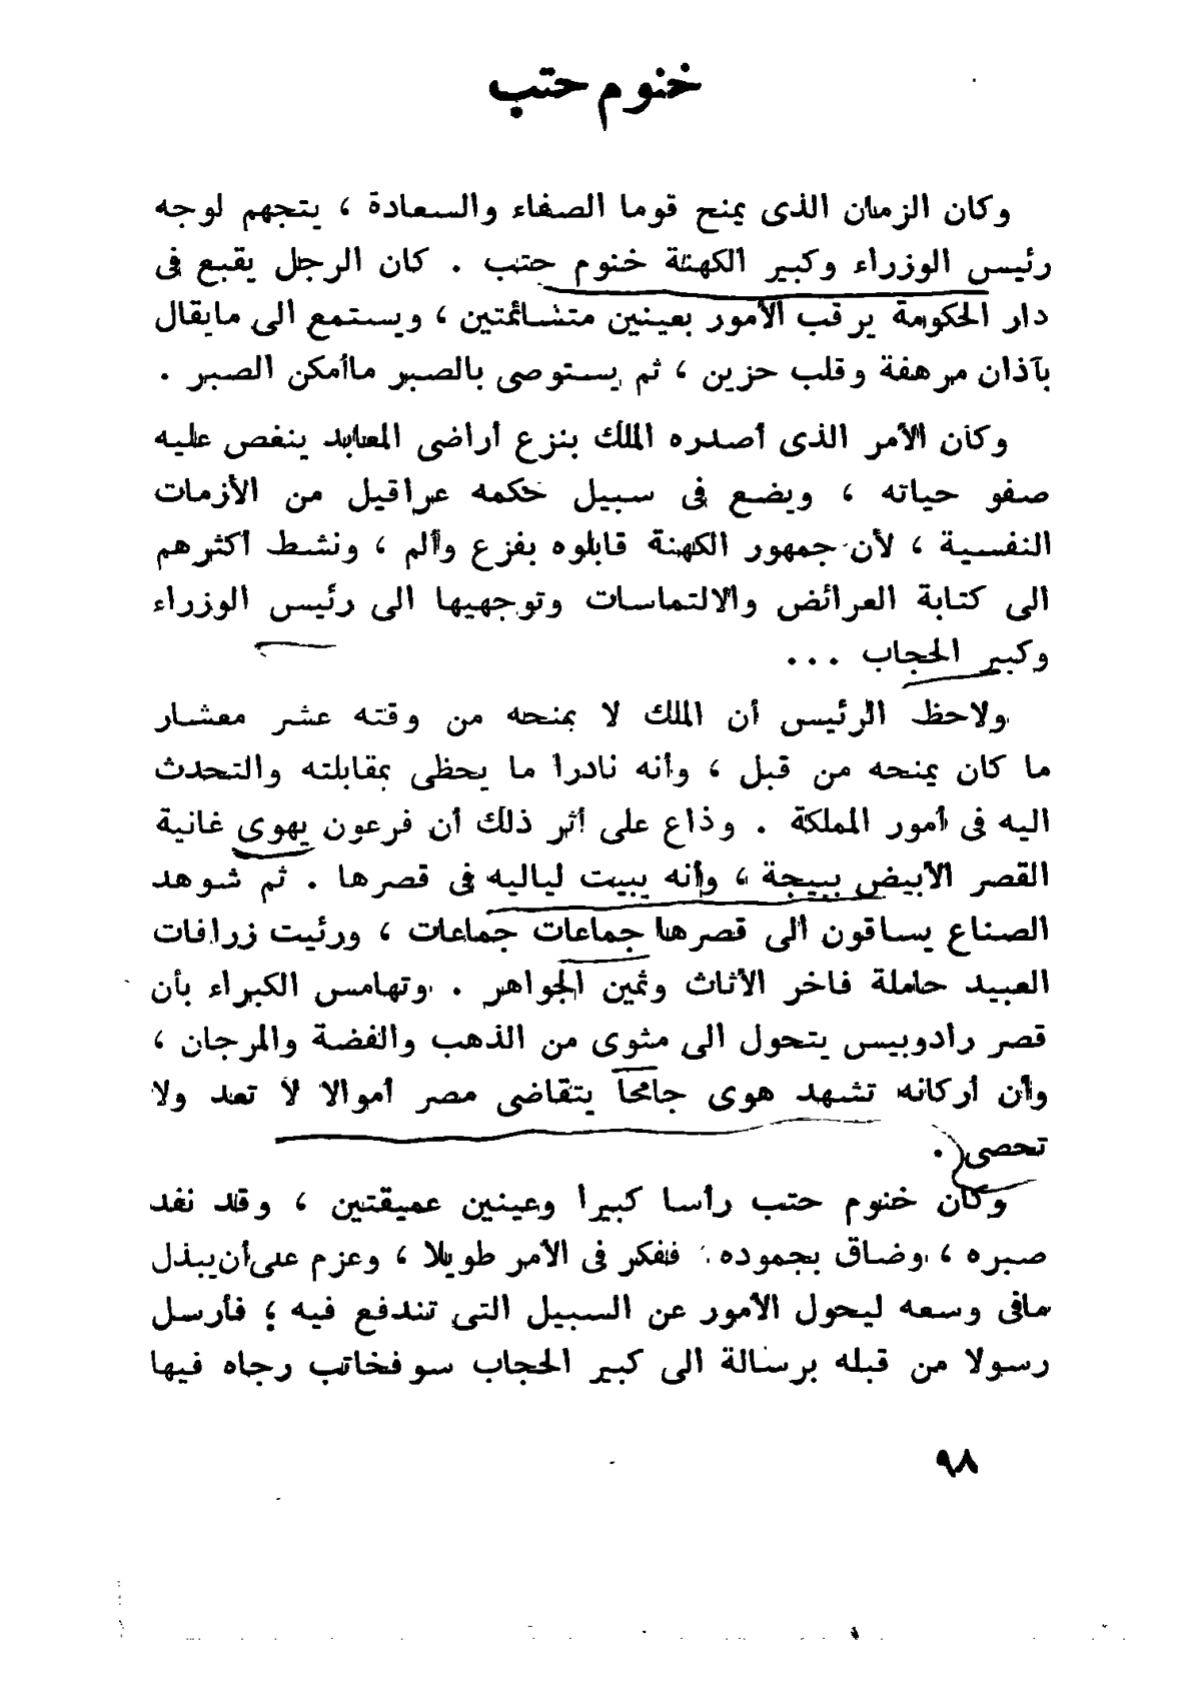 خنوم حتب
وكان الزمان الذى يمنح قوما الصفاء والسعادة ، يتجهم لوجه
رئيس الوزراء وكبير الكهنة خنوم حتب . كان الرجل يقبع فى
دار الحكومة يرقب الأمور بعينين متشائمتين ، ويستمع الى مايقال
بآذان مرهفة وقلب حزين ، ثم يستوصى بالصبر ماأمكن الصبر .
وكان الأمر الذى أصدره الملك بنزع أراضى المعابد ينغص عليه
صفو حياته ، ويضع فى سبيل حكمه عراقيل من الأزمات
النفسية ، لأن جمهور الكهنة قابلوه بفزع وألم ، ونشط أكثرهم
الى كتابة العرائض والالتماسات وتوجهيها الى رئيس الوزراء
وكبير الحجاب ...
ولاحظ الرئيس أن الملك لا يمنحه من وقته عشر معشار
ما كان يمنحه من قبل ، وأنه نادرا ما يحظى بمقابلته والتحدث
اليه فى أمور المملكة . وذاع على أثر ذلك أن فرعون يهوى غانية
القصر الأبيض ببيجة ، وأنه يبيت لياليه فى قصرها . ثم شوهد
الصناع يساقون الى قصرها جماعات جماعات ، ورئيت زرافات
العبيد حاملة فاخر الأثاث وثمين الجواهر . وتهامس الكبراء بأن
قصر رادوبيس يتحول الى مثوى من الذهب والفضة والمرجان ،
وأن أركانه تشهد هوى جامحا يتقاضى مصر أموالا لا تعد ولا
تحصى .
وكان خنوم حتب رأسا كبيرا وعينين عميقتين ، وقد نفد
صبره ، وضاق بجموده . ففكر فى الأمر طويلا ، وعزم على أن يبذل
مافى وسعه ليحول الأمور عن السبيل التى تندفع فيه ؛ فأرسل
رسولا من قبله برسالة الى كبير الحجاب سوفخاتب رجاه فيها
٩٨